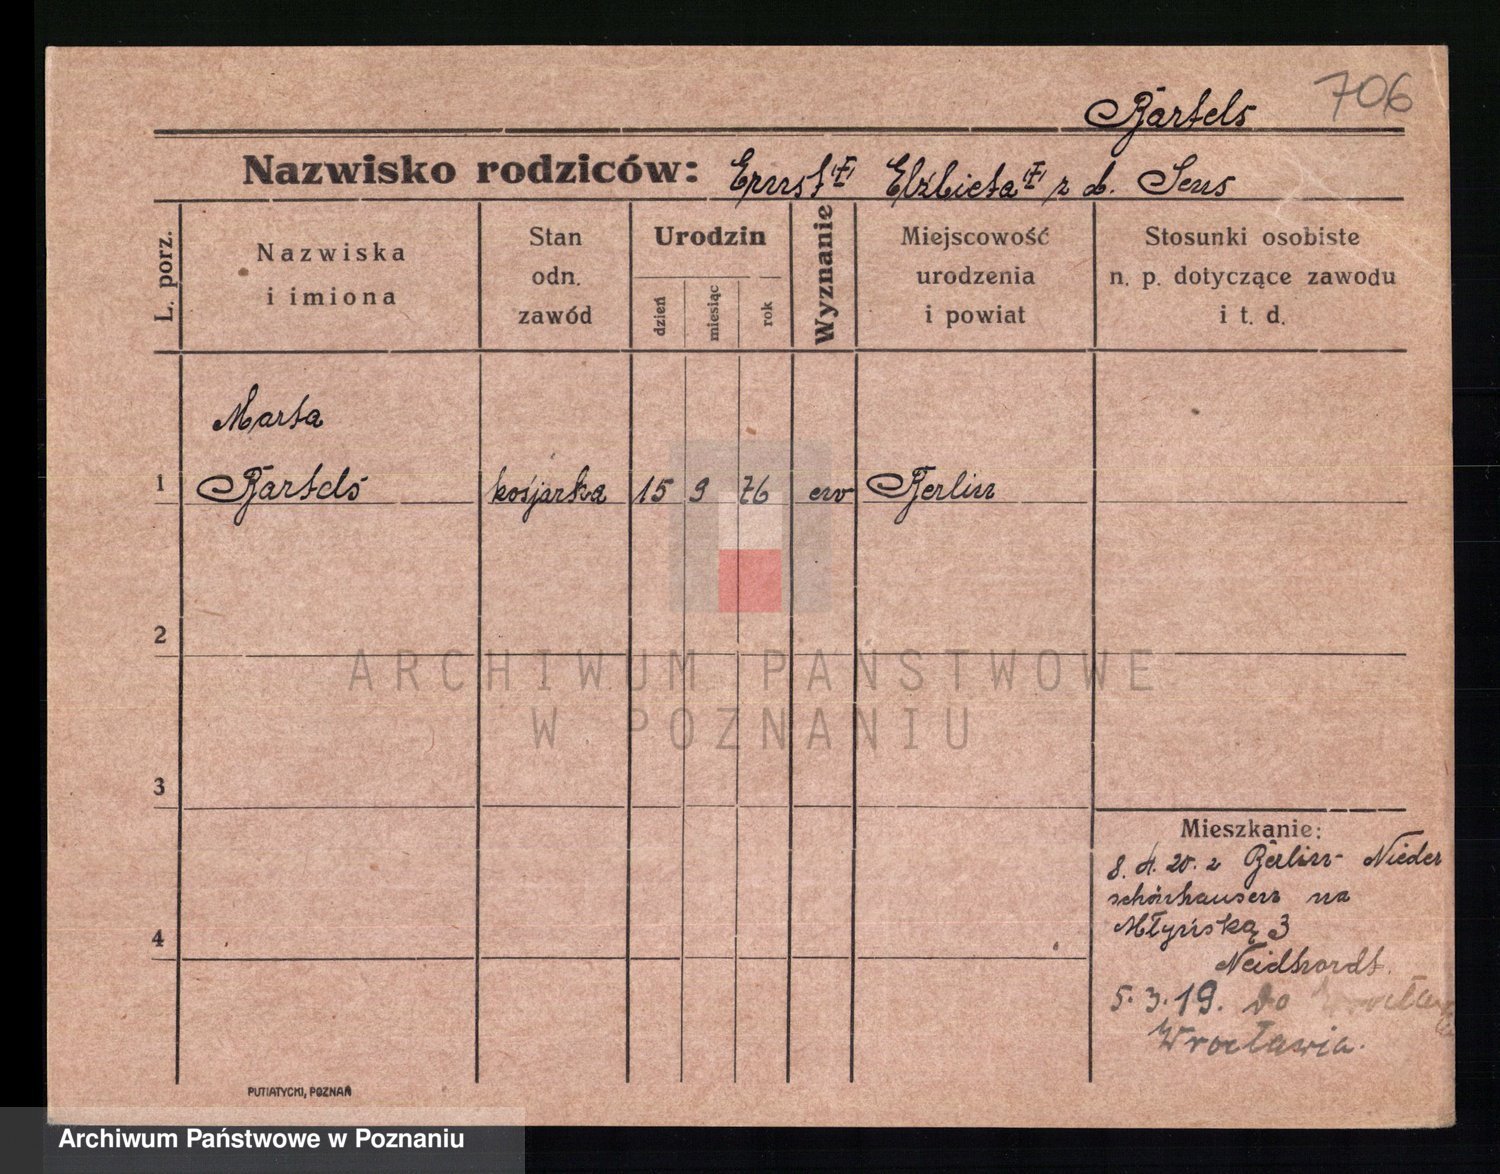 706
Bartels
Nazwisko rodziców: Ernst "†" Elżbieta "†" z d. Sens
L. porz.
Nazwiska
i imiona
Stan
odn.
zawód
Urodzin
dzień
miesiąc
rok
Wyznanie
Miejscowość
urodzenia
i powiat
Stosunki osobiste
n. p. dotyczące zawodu
i t. d.
Marta
1 Bartels kasjarka 15 9 76 ew Berlin
2
ARCHIWUM PAŃSTWOWE
W POZNANIU
3
Mieszkanie:
8. 4. 20. z Berlin- Nieder
schönhausen na
Młyńską 3
4
Neidhardt.
5. 3. 19. do
Wrocławia.
PUTIATYCKI, POZNAŃ
Archiwum Państwowe w Poznaniu